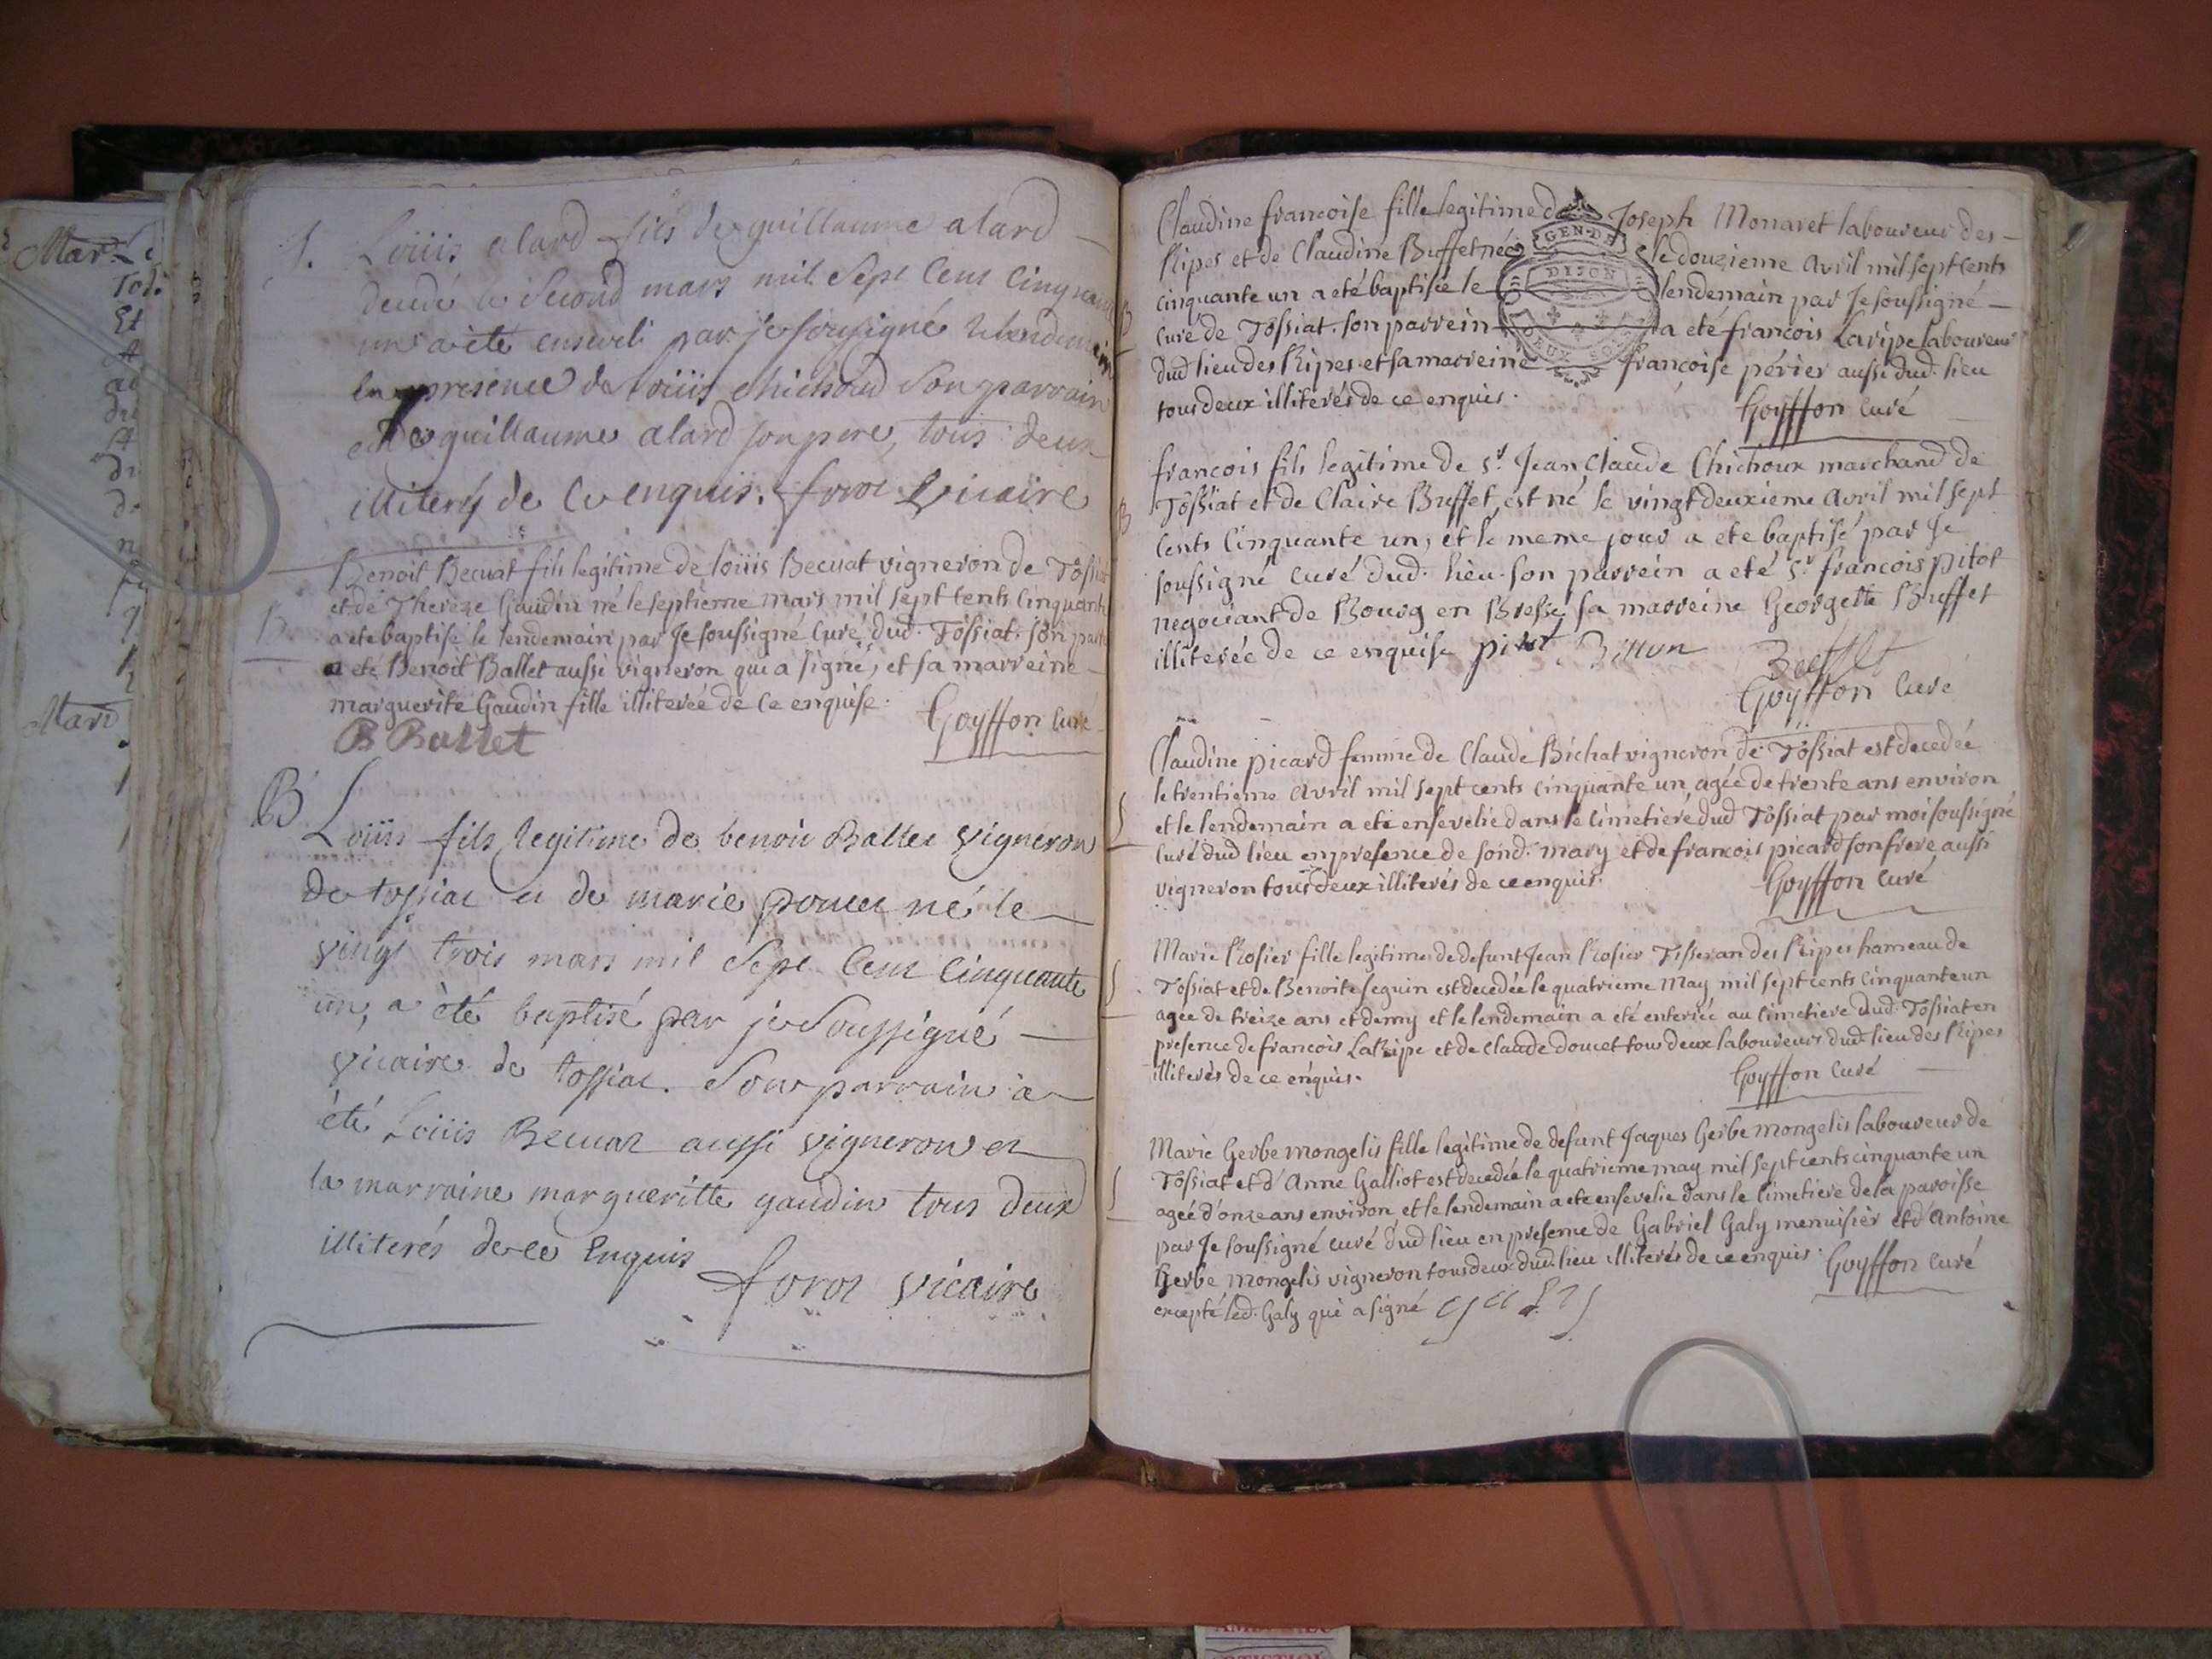 S. Loüis alard fils de guillaume alard
decedé le second mars mil sept cent cinquante
un a été enseveli par je soussigné le lendemain
en presence de Loüis chichoud son parrain
et de guillaume alard son pere, tous deux
illiterés de ce enquis. forot vicaire
Benoit Becuat fils legitime de loüis Becuat vigneron de Tossiat
et de Thereze Gaudin né le septieme mars mil sept cents cinquante
B. a eté baptisé le lendemain par Je soussigné Curé dud. Tossiat. son
a eté Benoit Ballet aussi vigneron qui a signé, et sa marreine
marguerite Gaudin fille illiterée de ce enquise. Goyffon Curé
B Ballet
B Loüis fils legitime de benoit Ballet vigneron
de tossiat et de marie né le
vingt trois mars mil sept cent cinquante
un, a été baptisé par je soussigné
vicaire de tossiat. son parrain a
été Loüis Becuat aussi vigneron et
la marraine margueritte gaudin tous deux
illiterés de ce enquis
forot vicaire
Claudine francoise fille legitime de Joseph Monaret laboureur des
Ripes et de Claudine Buffet née le douzieme Avril mil sept cents
cinquante un a eté baptisée le lendemain par Je soussigné
Curé de Tossiat. son parrein a eté francois Laripe laboureur
dud lieu des Ripes. et sa marreine françoise périer aussi dud. lieu
tous deux illiterés de ce enquis.
GEN. DE
DIJON
DEUX SOLS
Goyffon Curé
B francois fils legitime de Sr. Jean Claude Chichoux marchand de
Tossiat et de Claire Buffet, est né le vingt deuxieme Avril mil sept
cents Cinquante un, et le meme jour a eté baptisé par Je
soussigné Curé dud. lieu. son parrein a eté Sr francois pitot
negociant de Bourg en Bresse, sa marreine Georgette Buffet
illiterée de ce enquise
Goyffon Curé
Claudine picard femme de Claude Bichat vigneron de Tossiat est decedée
le trentieme Avril mil sept cents cinquante un, agée de trente ans environ
S et le lendemain a eté ensevelie dans le cimetiere dud Tossiat par moi soussigné
Curé dud lieu en presence de sond. mary et de francois picard son frere aussi
vigneron tous deux illiterés de ce enquis. Goyffon Curé
Marie Rosier fille legitime de defunt Jean Rosier Tisseran des Ripes hameau de
S Tossiat et de Benoite Seguin est decedée le quatrieme May mil sept cents cinquante un
agée de treize ans et demy et le lendemain a eté enterrée au cimetiere dud. Tossiat en
presence de francois LaRipe et de Claude doucet tous deux laboureurs dud. lieu des Ripes
illiterés de ce enquis. Goyffon Curé
Marie Gerbe mongelis fille legitime de defunt Jaques Gerbe mongelis laboureur de
S Tossiat et d'Anne Galliot est decedée le quatrieme may mil sept cents cinquante un
ageé d'onze ans environ et le lendemain a eté ensevelie dans le cimetiere de la paroisse
par Je soussigné curé dud lieu en presence de Gabriel Galy menuisier et d'Antoine
Gerbe mongelis vigneron tous deux dud. lieu illiterés de ce enquis. Goyffon Curé
excepté led. Galy qui a signé galy